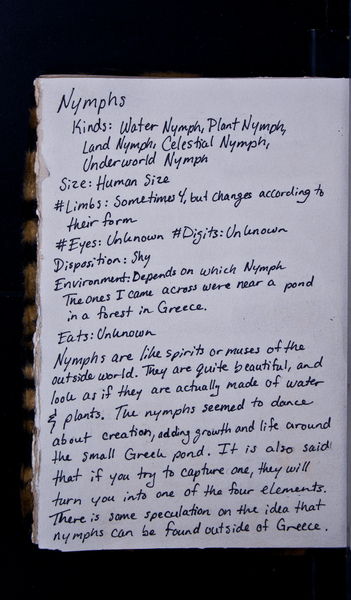 Nymphs
Kinds: Water Nymph, Plant Nymph,
Land Nymph, Celestial Nymph,
Underworld Nymph
Size: Human Size
#Limbs: Sometimes 4, but changes according to
their form
#Eyes: Unknown #Digits: Unknown
Disposition: Shy
Environment: Depends on which Nymph
The ones I came across were near a pond
in a forest in Greece.
Eats: Unknown
Nymphs are like spirits or muses of the
outside world. They are quite beautiful, and
look as if they are actually made of water
& plants. The nymphs seemed to dance
about creation, adding growth and life around
the small Greek pond. It is also said
that if you try to capture one, they will
turn you into one of the four elements.
There is some speculation on the idea that
nymphs can be found outside of Greece.